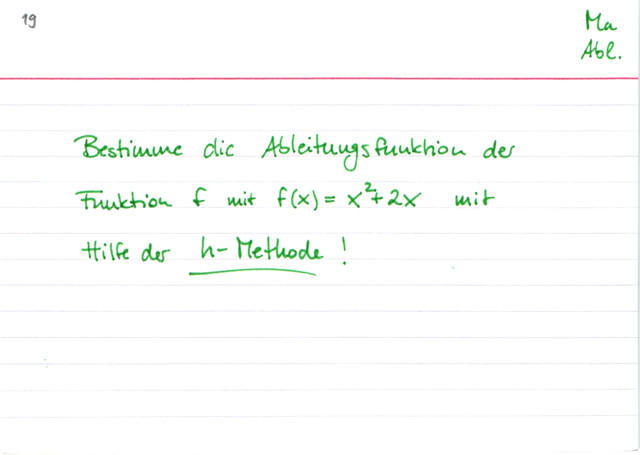 19
Ma
Abl.
Bestimme die Ableitungsfunktion der
Funktion f mit f(x) = x²+2x mit
Hilfe der h-Methode !